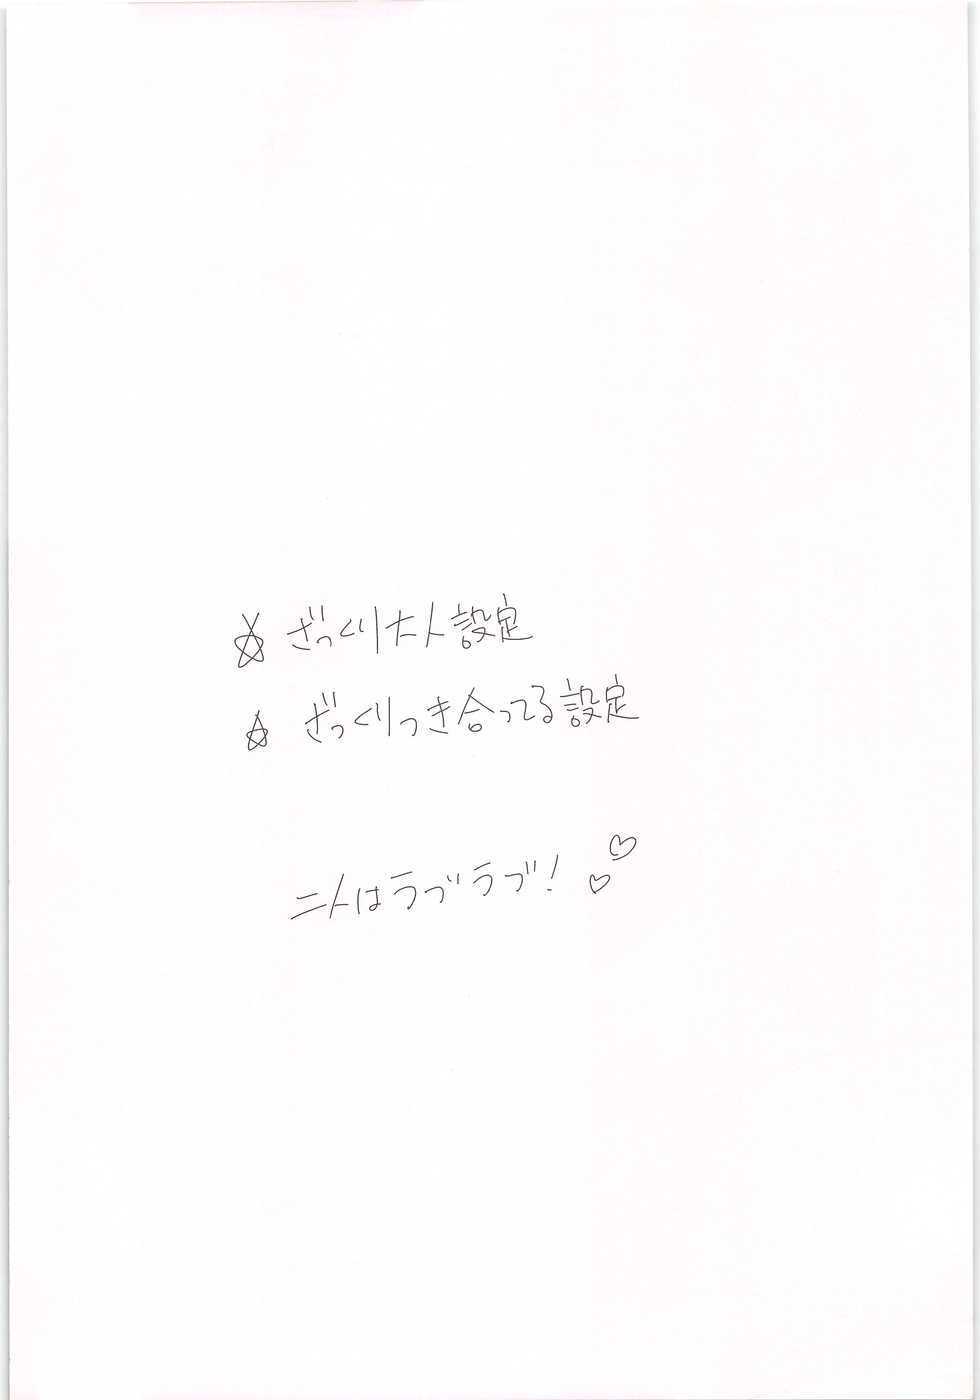 ☆ ざっくり大人設定
☆ ざっくりつき合ってる設定
二人はラブラブ！♡♡